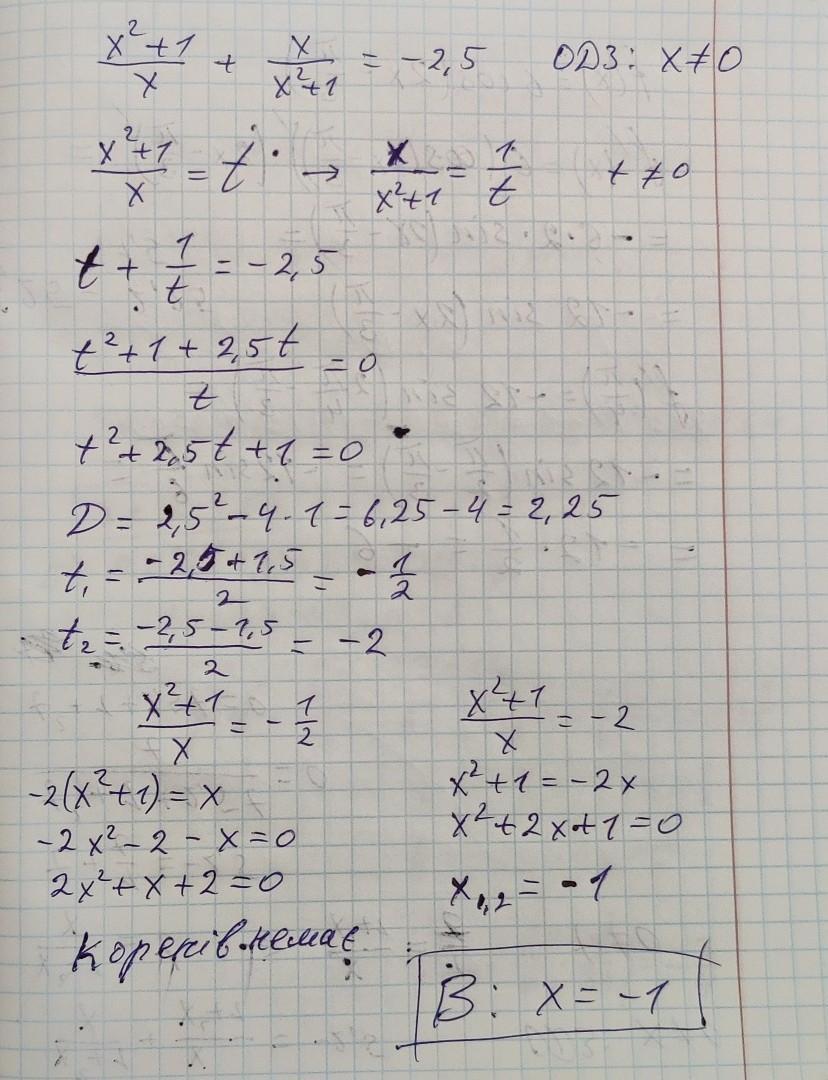 x²+1/x + x/x²+1 = -2,5 ОДЗ: x≠0
x²+1/x = t → x/x²+1 = 1/t t ≠0
t + 1/t = -2,5
t²+1+2,5t/t = 0
t²+2,5t+1=0
D = 2,5²-4·1=6,25-4=2,25
t₁ = -2,5+1,5/2 = -1/2
t₂ = -2,5-1,5/2 = -2
x²+1/x = -1/2
-2(x²+1)=x
-2x²-2-x=0
2x²+x+2=0
Коренів немає
x²+1/x = -2
x²+1=-2x
x²+2x+1=0
x₁,₂ = -1
В: x = -1